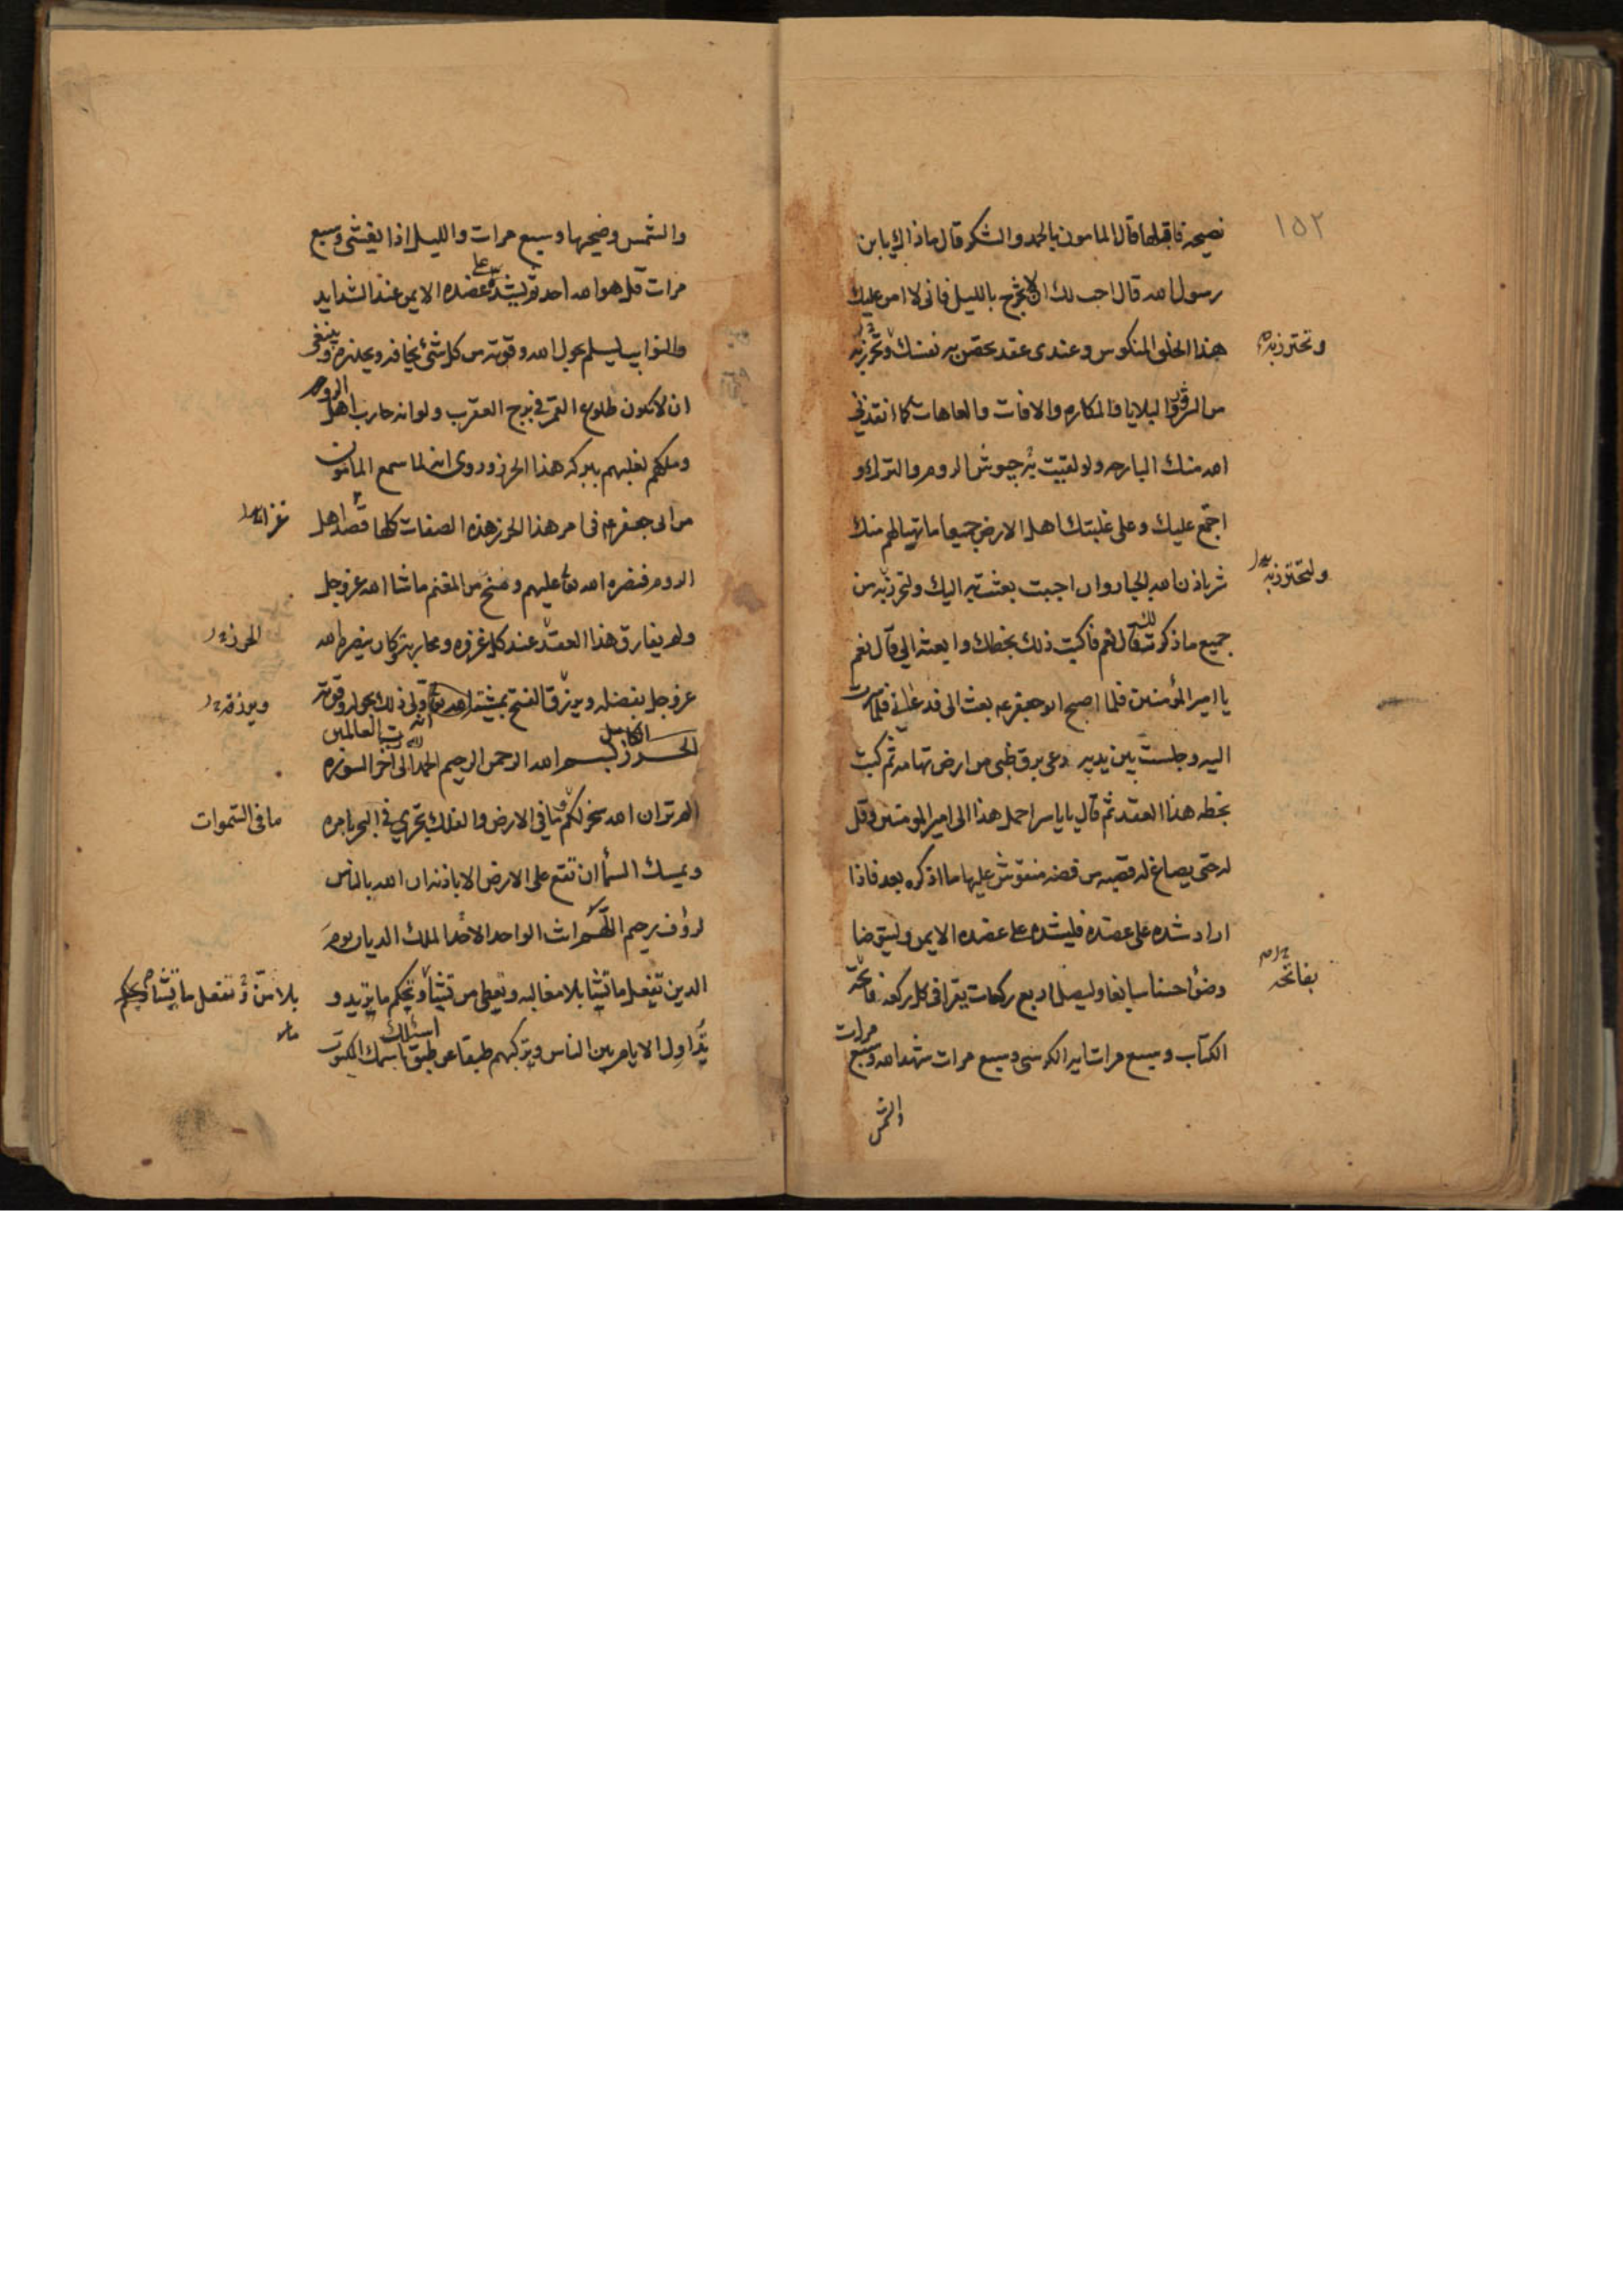 ١٥٢
نصيحة فاقبلها قال المامون بالحمد والشكر قال ماذاك يابن
رسول الله قال احب لك ان لا تخرج بالليل فانى لا امن عليك
هذا الخلق المنكوس وعندى عقد تحصن به نفسك وتحرز به
وتحترز به
من الشرور والبلايا والمكاره والافات والعاهات كما انقذنى
الله منك البارحه ولو لقيت به جيوش الروم والترك و
اجتمع عليك وعلى غلبتك اهل الارض جميعا ما تهيا لهم منك
شئ باذن الله الجبار وان احببت بعثت به اليك ولتحرز به من
ولتحترز به
جميع ماذكرت لك قال نعم فاكتب ذلك بخطك وابعثه الى قال نعم
يا امير المؤمنين فلما اصبح ابو جعفر ع بعث الى فدعانى فلما صرت
اليه وجلست بين يديه دعى برق ظبى من ارض تهامه ثم كتب
بخطه هذا العقد ثم قال يا ياسر احمل هذا الى امير المومنين وقل
له حتى يصاغ له قصبه من فضه منقوش عليها ما اذكره بعد فاذا
اراد شده على عضده فليشده على عضده الايمن وليتوضا
وضؤا حسنا سابغا وليصل اربع ركعات يقرا فى كل ركعه فاتحة
بفاتحه
الكتاب وسبع مرات ايه الكرسى وسبع مرات شهد الله وسبع مرات
والشمس
والشمس وضحيها وسبع مرات والليل اذا يغشى وسبع
مرات قل هو الله احد ثم يشده على عضده الايمن عند الشدايد
والنوايب ليسلم بحول الله وقوته من كل شئ يخافه ويحذره وينبغى
ان لا يكون طلوع القمر فى برج العقرب ولو انه حارب اهل الروم
وملكهم لغلبهم ببركه هذا الحرز وروى انه لما سمع المامون
من ابى جعفر ع فى امر هذا الحرز هذه الصفات كلها قصد اهل
غزا
الروم فنصره الله تعا عليهم ومنح من المغنم ما شا الله عز وجل
ولم يفارق هذا العقد عند كل غزوه ومحاربه وكان ينصره الله
الحرز
عز وجل بفضله ويرزق الفتح بمشيته انه ولى ذلك بحوله وقوته
ويرزقه
الحرز الكامل بسم الله الرحمن الرحيم الحمد لله رب العالمين الى اخر السوره
الم تر ان الله سخر لكم ما فى الارض والفلك تجري فى البحر بامره
ما فى السموات
ويمسك السما ان تقع على الارض الا باذنه ان الله بالناس
لرؤف رحيم اللهم انت الواحد الاحد الملك الديان يوم
الدين تفعل ما تشا بلا مغالبه وتعطى من تشا وتحكم ما تريد و
بلا من وتفعل ما تشاء وتحكم
تداول الايام بين الناس وتركبهم طبقا عن طبق اسئلك باسمك المكتوب